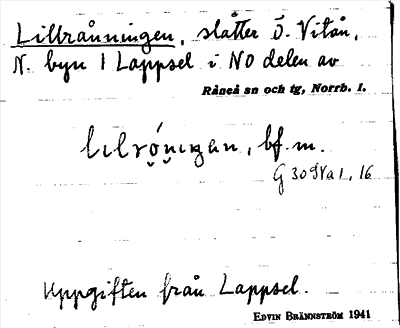 Lillrånningen, slåtter Ö. Vitån,
N. byn 1 Lappsel i NO delen av
Råneå sn och tg, Norrb. l.
bf. m.
16
Uppgiften från Lappsel.
EDVIN BRÄNNSTRÖM 1941